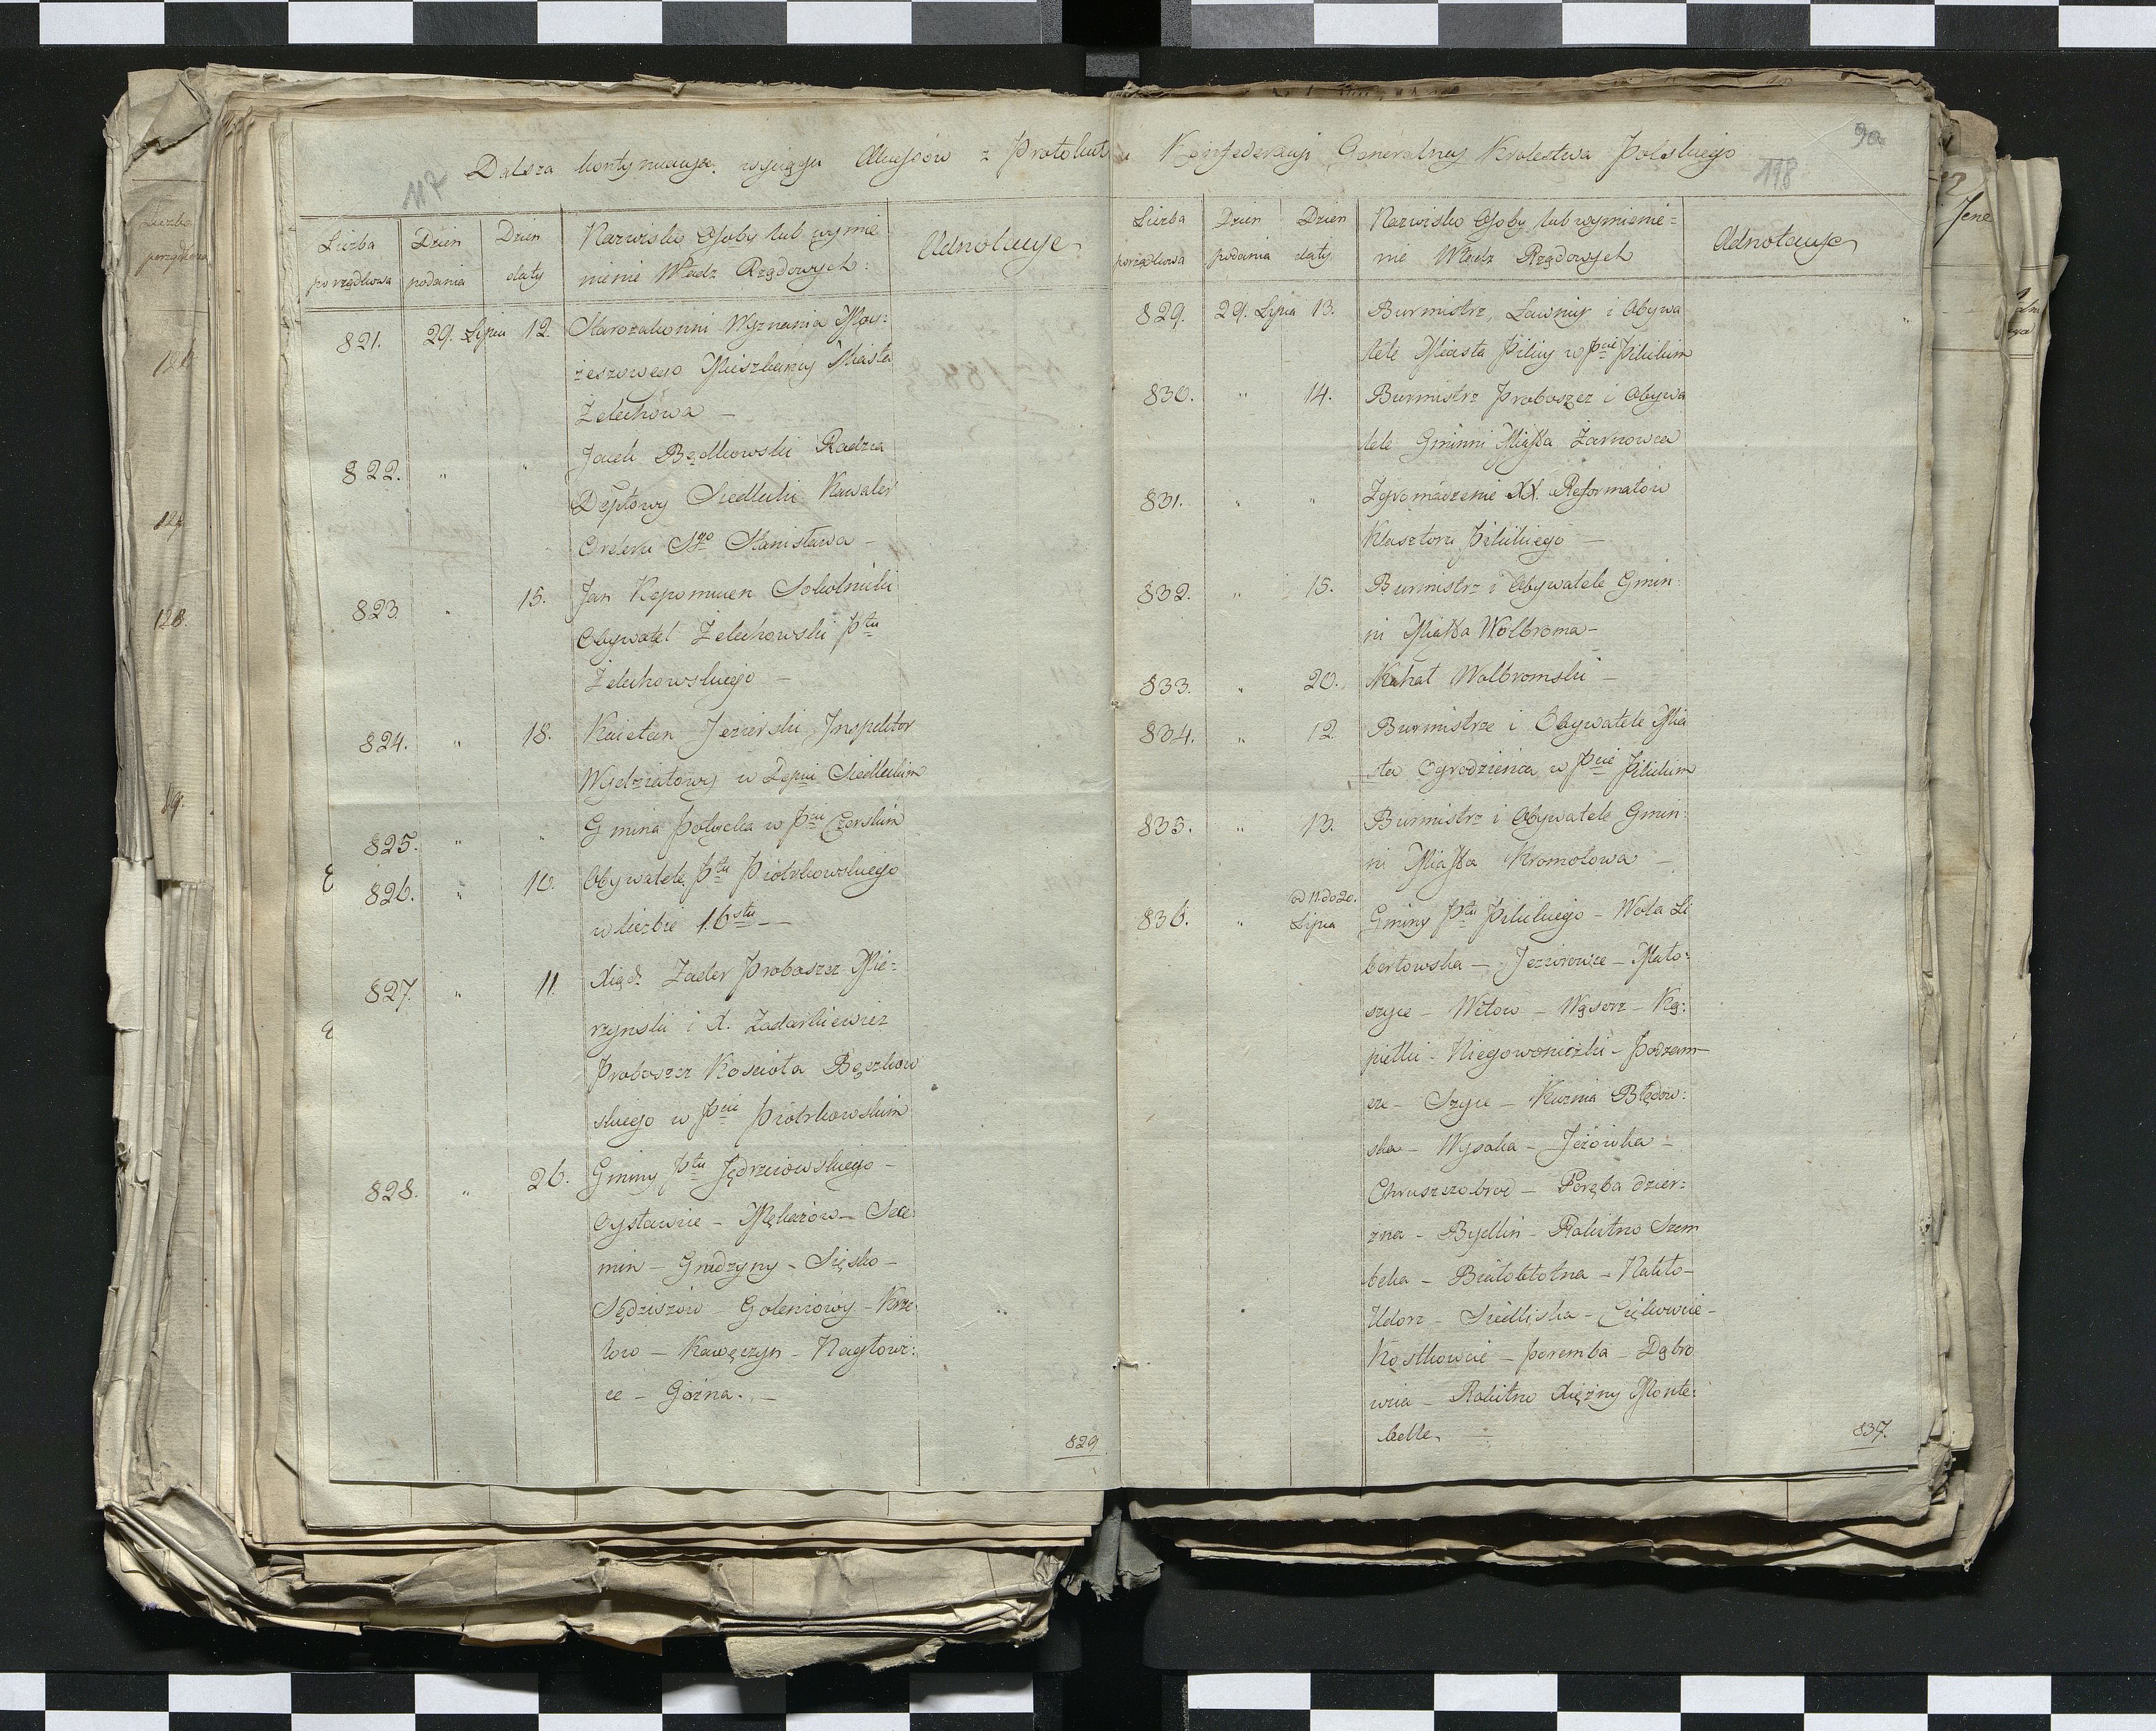 Dalsza kontynuacya wyciągu Akcessów z Protokułu Konfederacyi Generalney Krolestwa Polskiego
117
Liczba porządkowa
Dzien podania
Dzien daty
Nazwisko Osoby lub wymie
nienie Władz Rządowych:
Adnotacye
821. 29. Lipca 12. Starozakonni Wyznania Moy:
zeszowego Mieszkancy Miasta
Żelechowa —
822. " " Jacek Bądkowski Radzca
Dęptowy Siedlecki Kawaler
Orderu Sgo Stanisława —
823. " 15. Jan Nepomucen Sokolnicki
Obywatel Żelechowski Ptu
Żelechowskiego —
824. " 18. Kaietan Jezierski Inspektor
Wydziałowy w Depcie Siedleckim
825. " " Gmina Potycka w Pcie Czerskim
826. " 10. Obywatele Ptu Piotrkowskiego
w liczbie 16stu —
827. " 11. Xiądz Zader Proboszcz Mie:
rzynski i X. Zadarkiewicz
Proboszcz Kościoła Bęczkow
skiego w Pcie Piotrkowskim
828. " 26. Gminy Ptu Jędrzeiowskiego —
Cysławice — Mękarzow — Sce:
min — Grudzyny — Sięsko —
Sędziszow — Goleniowy — Krze:
low — Kawęczyn — Nagłowi:
ce — Gozna. —
829
90
118
Liczba porządkowa
Dzien podania
Dzien daty
Nazwisko Osoby lub wymienie=
nie Władz Rządowych
Adnotacye
829. 29. Lipca 13. Burmistrz, Ławnicy i Obywa
tele Miasta Pilicy w Pcie Pilickim
830. " 14. Burmistrz Proboszcz i Obywa
tele Gminni Miasta Żarnowca
831. " " Zgromadzenie XX. Reformatów
Klasztoru Pilickiego —
832. " 15. Burmistrz i Obywatele Gmin:
ni Miasta Wolbroma —
833. " 20. Kahał Wolbromski —
834. " 12. Burmistrze i Obywatele Mia
sta Ogrodzieńca w Pcie Pilickim
835. " 13. Burmistrz i Obywatele Gmin:
ni Miasta Kromołowa —
836. " od 11. do 20. Lipca Gminy Ptu Pilickiego — Wola Li
bertowska — Jeziorowice — Mało:
szyce — Witow — Wąsorz — Ką:
pielki — Niegowoniczki — Podzam
cze — Szyce — Kuznia Błędow:
ska — Wysoka — Jeżowka —
Chruszczobrod — Poręba dzier:
zna — Bydlin — Rokitno Szem
beka — Białobłotna — Nakło —
Udorz — Siedliska — Ciękowice —
Kostkowice — Poremba — Dąbro
wica — Rokitno Xiężny Monte:
belle. —
837.